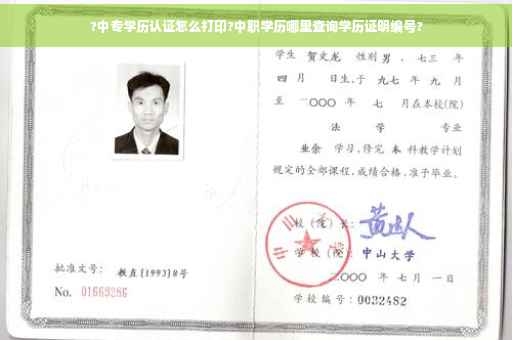 ?中专学历认证怎么打印?中职学历哪里查询学历证明编号?
学生 贺文龙 性别 男 、七三 年
四 月 日生,于 九七 年 九 月
至 二〇〇〇 年 七 月在本校(院)
法 学 专业
业余 学习,修完 本 科教学计划
规定的全部课程,成绩合格,准予毕业。
校 (院) 长:
学 校 (院): 中山大学
二〇〇〇 年 七 月 一 日
批准文号: 教直[1993]8号
No. 01669286
学校编号: 0032482